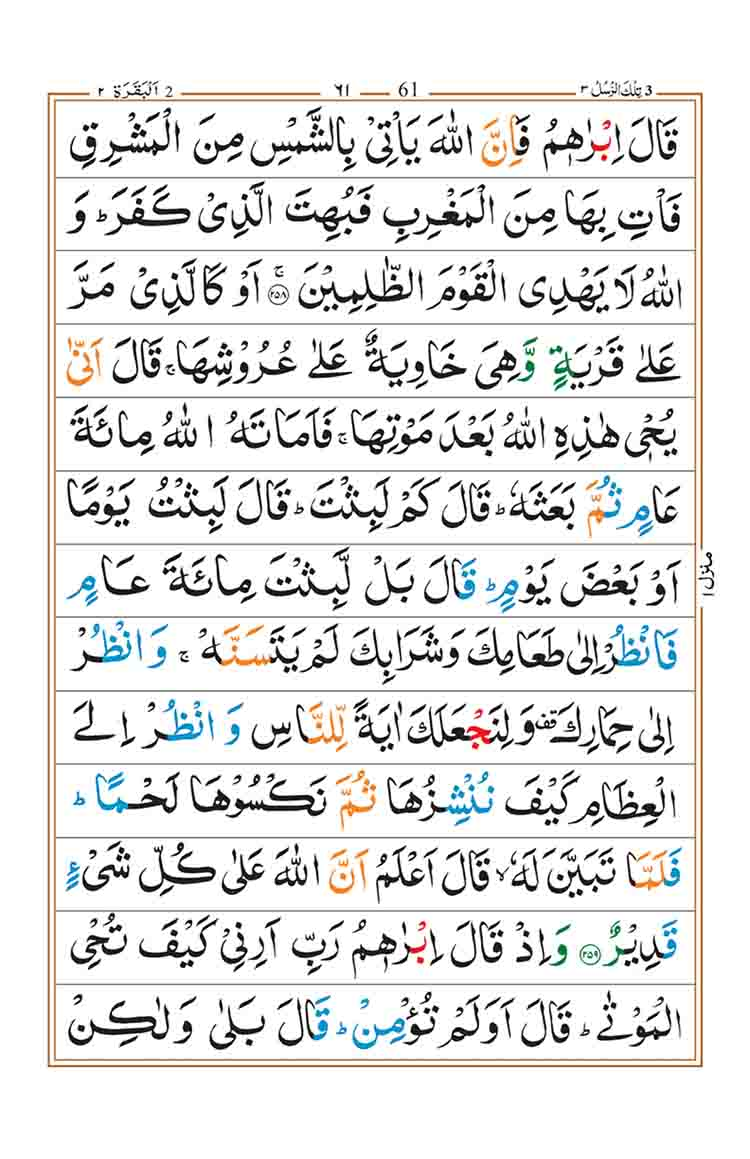 3 تِلْكَ الرُّسُلُ ٣
61 ٦١
2 اَلْبَقَرَة ٢
قَالَ اِبْرٰهٖمُ فَاِنَّ اللّٰهَ يَاْتِيْ بِالشَّمْسِ مِنَ الْمَشْرِقِ
فَاْتِ بِهَا مِنَ الْمَغْرِبِ فَبُهِتَ الَّذِيْ كَفَرَ ؕ وَ
اللّٰهُ لَا يَهْدِى الْقَوْمَ الظّٰلِمِيْنَ ۚ ﴿٢٥٨﴾ اَوْ كَالَّذِيْ مَرَّ
عَلٰى قَرْيَةٍ وَّهِيَ خَاوِيَةٌ عَلٰى عُرُوْشِهَا ۚ قَالَ اَنّٰى
يُحْيٖ هٰذِهِ اللّٰهُ بَعْدَ مَوْتِهَا ۚ فَاَمَاتَهُ اللّٰهُ مِائَةَ
عَامٍ ثُمَّ بَعَثَهٗ ؕ قَالَ كَمْ لَبِثْتَ ؕ قَالَ لَبِثْتُ يَوْمًا
اَوْ بَعْضَ يَوْمٍ ؕ قَالَ بَلْ لَّبِثْتَ مِائَةَ عَامٍ
فَانْظُرْ اِلٰى طَعَامِكَ وَشَرَابِكَ لَمْ يَتَسَنَّهْ ۚ وَانْظُرْ
اِلٰى حِمَارِكَ قف وَلِنَجْعَلَكَ اٰيَةً لِّلنَّاسِ وَانْظُرْ اِلَى
الْعِظَامِ كَيْفَ نُنْشِزُهَا ثُمَّ نَكْسُوْهَا لَحْمًا ؕ
فَلَمَّا تَبَيَّنَ لَهٗ ۙ قَالَ اَعْلَمُ اَنَّ اللّٰهَ عَلٰى كُلِّ شَيْءٍ
قَدِيْرٌ ﴿٢٥٩﴾ وَاِذْ قَالَ اِبْرٰهٖمُ رَبِّ اَرِنِيْ كَيْفَ تُحْيِ
الْمَوْتٰى ؕ قَالَ اَوَلَمْ تُؤْمِنْ ؕ قَالَ بَلٰى وَلٰكِنْ
منزل ١